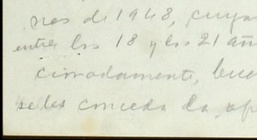 nes de 1948, cuya
entre los 18 y los 21 añ
cionadamente, bue
se les conceda la op